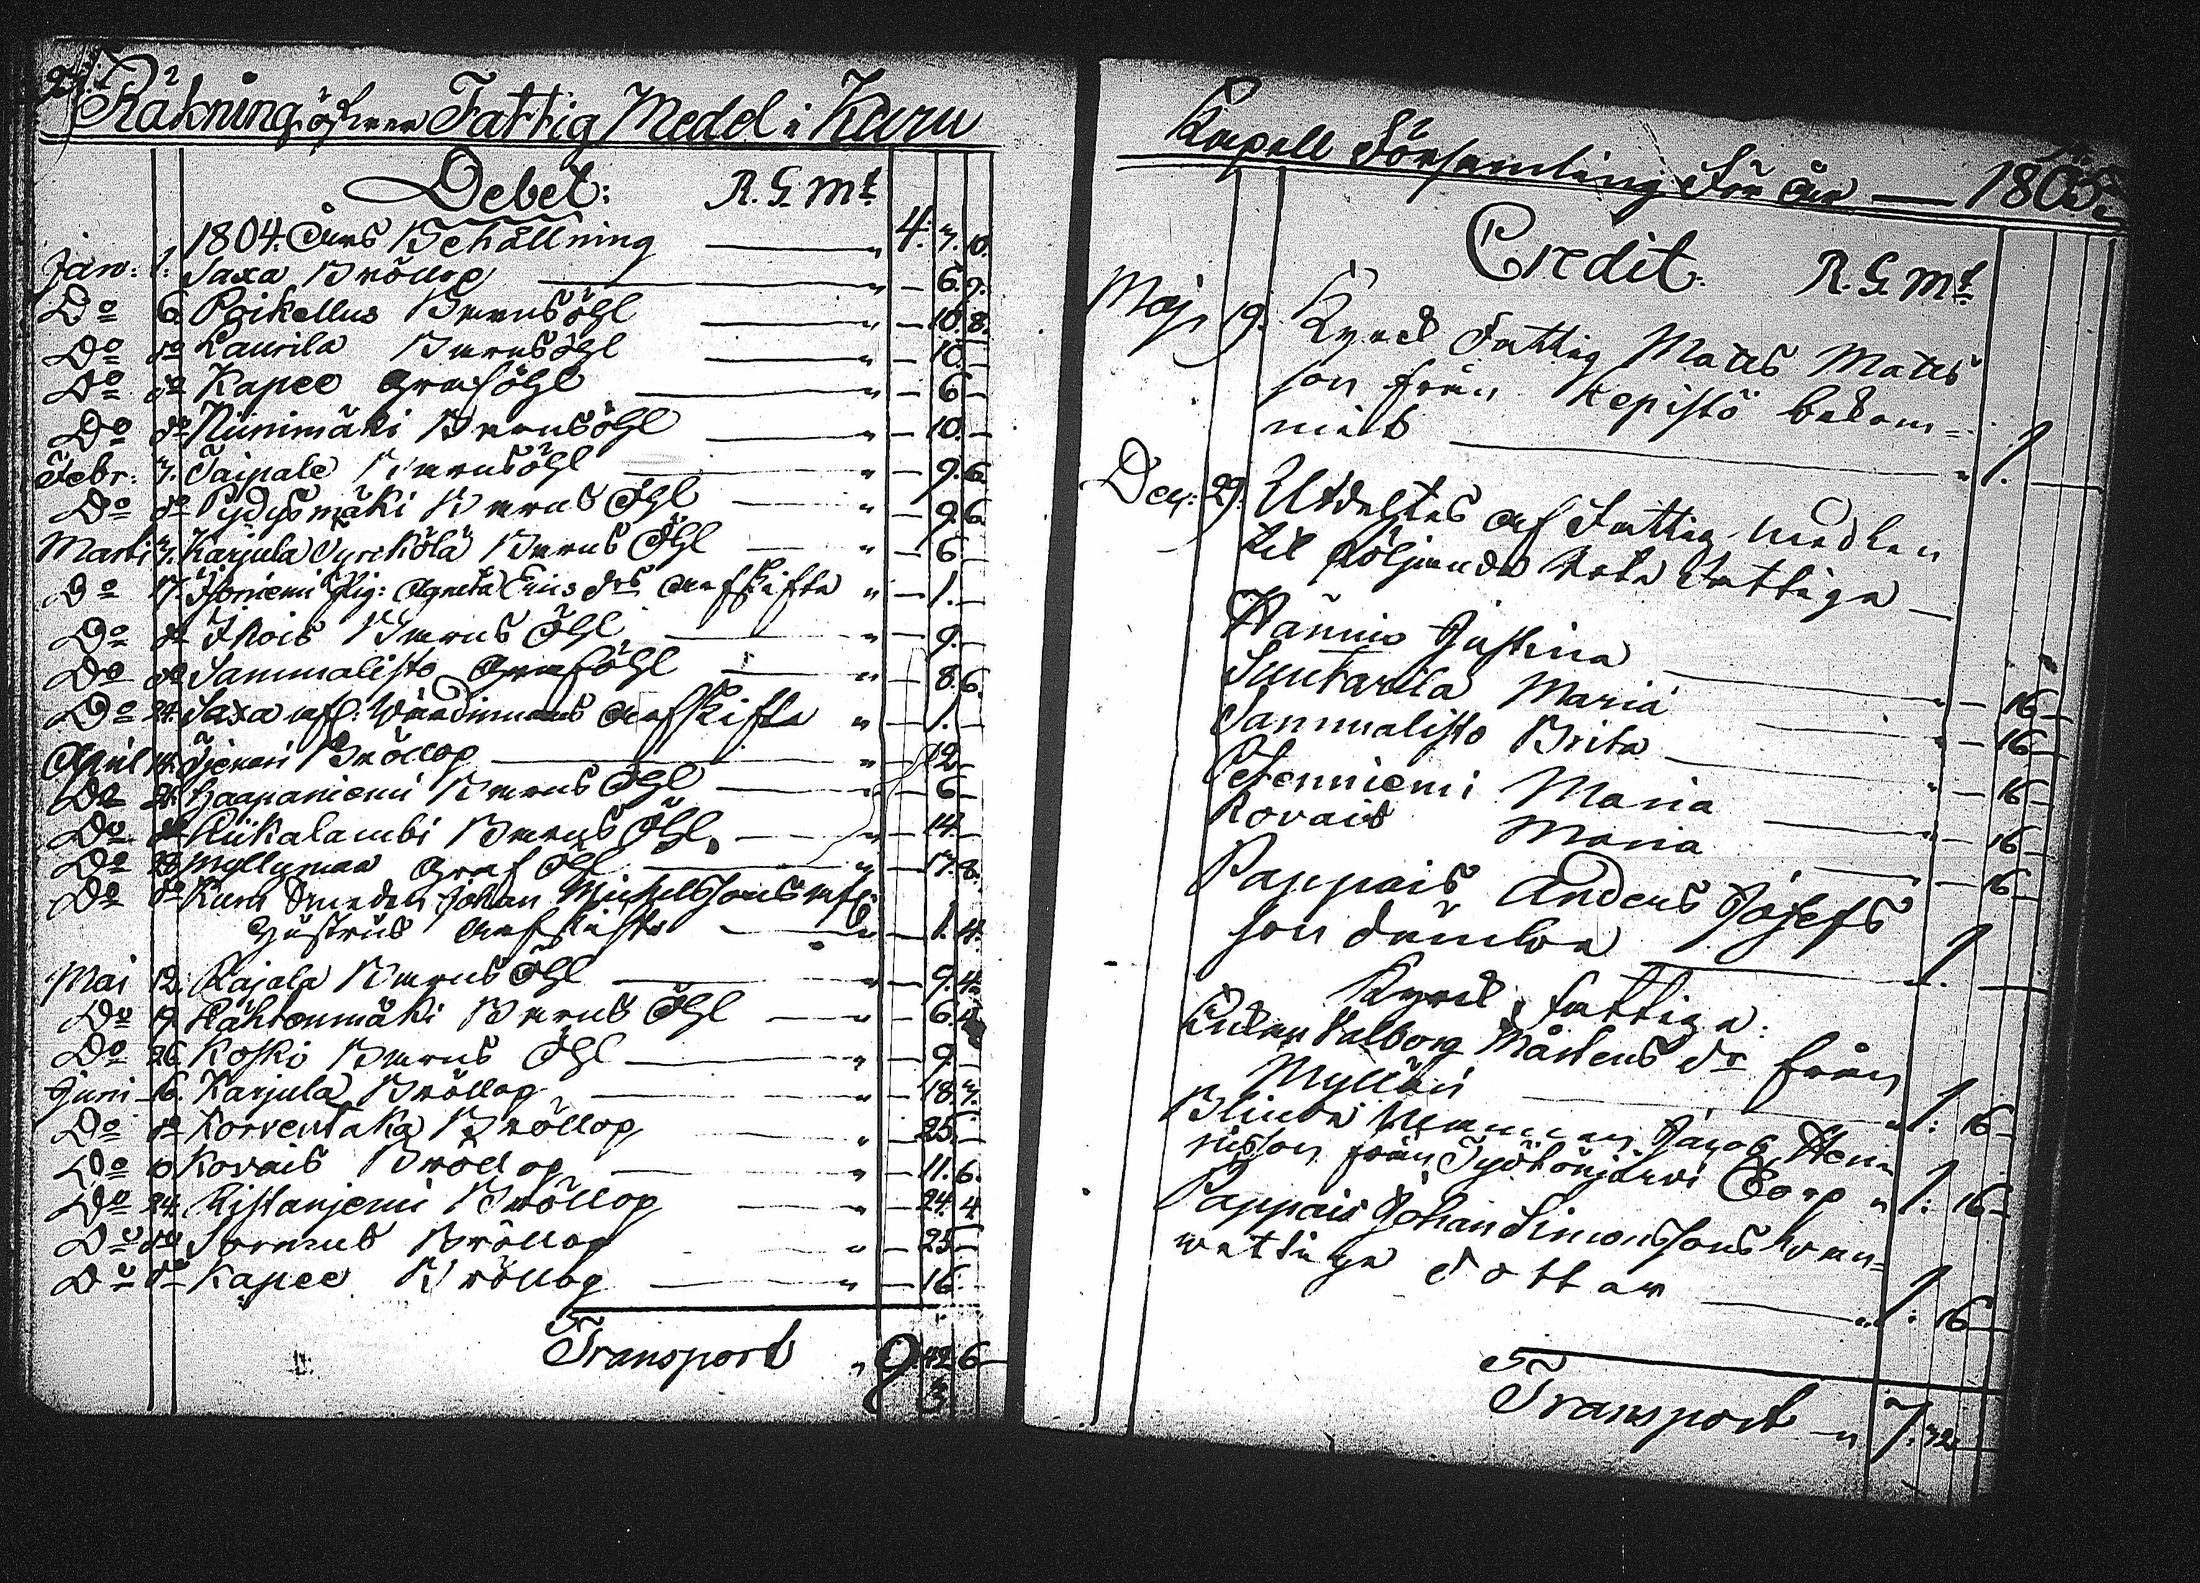 Räkning öfwer Fattig Medel i Kuru
Debet: R. G. Mt
1804. Års Behållning " 4. 7. 10.
Jan: 1. Saxa Bröllop " — 6. 9.
Do 6. Poikellus Barnsöhl " — 10. 8.
Do do Laurila Barnsöhl " — 10. —
Do do Kapee Grafsöhl " — 6 —
Do do Niinimäki Barnsöhl " — 10. —
Febr: 3. Taipale Barnsöhl " — 9. 6.
Do do Pydysmäki Barns Öhl " — 9. 6
Marti 3. Karjula Syrekölä Barns Öhl " — 6 —
Do 17. Pig: Agneta Erics dr Aufskifte " — 1. —
Do do Itkois Barns Öhl " — 9. —
Do do Sammalisto Grafsöhl " — 8. 6.
Do 24. Saxa afl: Wärdinnans Aufskifte " — 1. —
April 14. Bröllop " — 12 —
Do Haapaniemi Barns Öhl " — 6 —
Do do Riikalambi Barns Öhl " — 14. —
Do 28 Myllymaa Graf Öhl " — 17. 8.
Do do Kuru Smeden Johan Michelssons afl:
Hustrus Aufskifte " — 1. 4.
Mai 12. Rajala Barns Öhl " — 9. 4.
Do 19. Röhkönmäki Barns Öhl " — 6. 4
Do 26. Koski Barns Öhl " — 9. —
Juni 16. Karjula Bröllop " — 18. 3.
Do do Korventaka Bröllop " — 25. —
Do Kovais Bröllop " — 11. 6.
Do 24. Ristanjemi Bröllop " — 24. 4
Do do Sormus Bröllop " — 25 —
Do do Kapee Bröllop " — 16. —
Transport " 9. 42. 6
Kapell Församling För år — 1805.
Credit. R. G. Mt
Maj 19. Kyrck Fattig Mats Mats
son från Kepistö bekom=
mit " 1. —
Dec: 29. Utdeltes af Fattig medlen
til följande Rota Fattiga —
Hännis Justina " — 16 —
Suntarila Maria " — 16 —
Sammalisto Brita " — 16 —
Petenniemi Maria " — 16 —
Kovais Maria " — 16 —
Pappais Anders Josefs
son dumba " 1. —
Kyrck fattiga:
Enkan Valborg Mårtens dr från
Mylläri " 1: 16 —
Blinda Mannen Jacob Hen
ricsson från Työtönjärvi Torp " 1: 16 —
Pappais Johan Simonssons wan=
wettiga Dotter " 1: 16 —
Transport " 7. 32